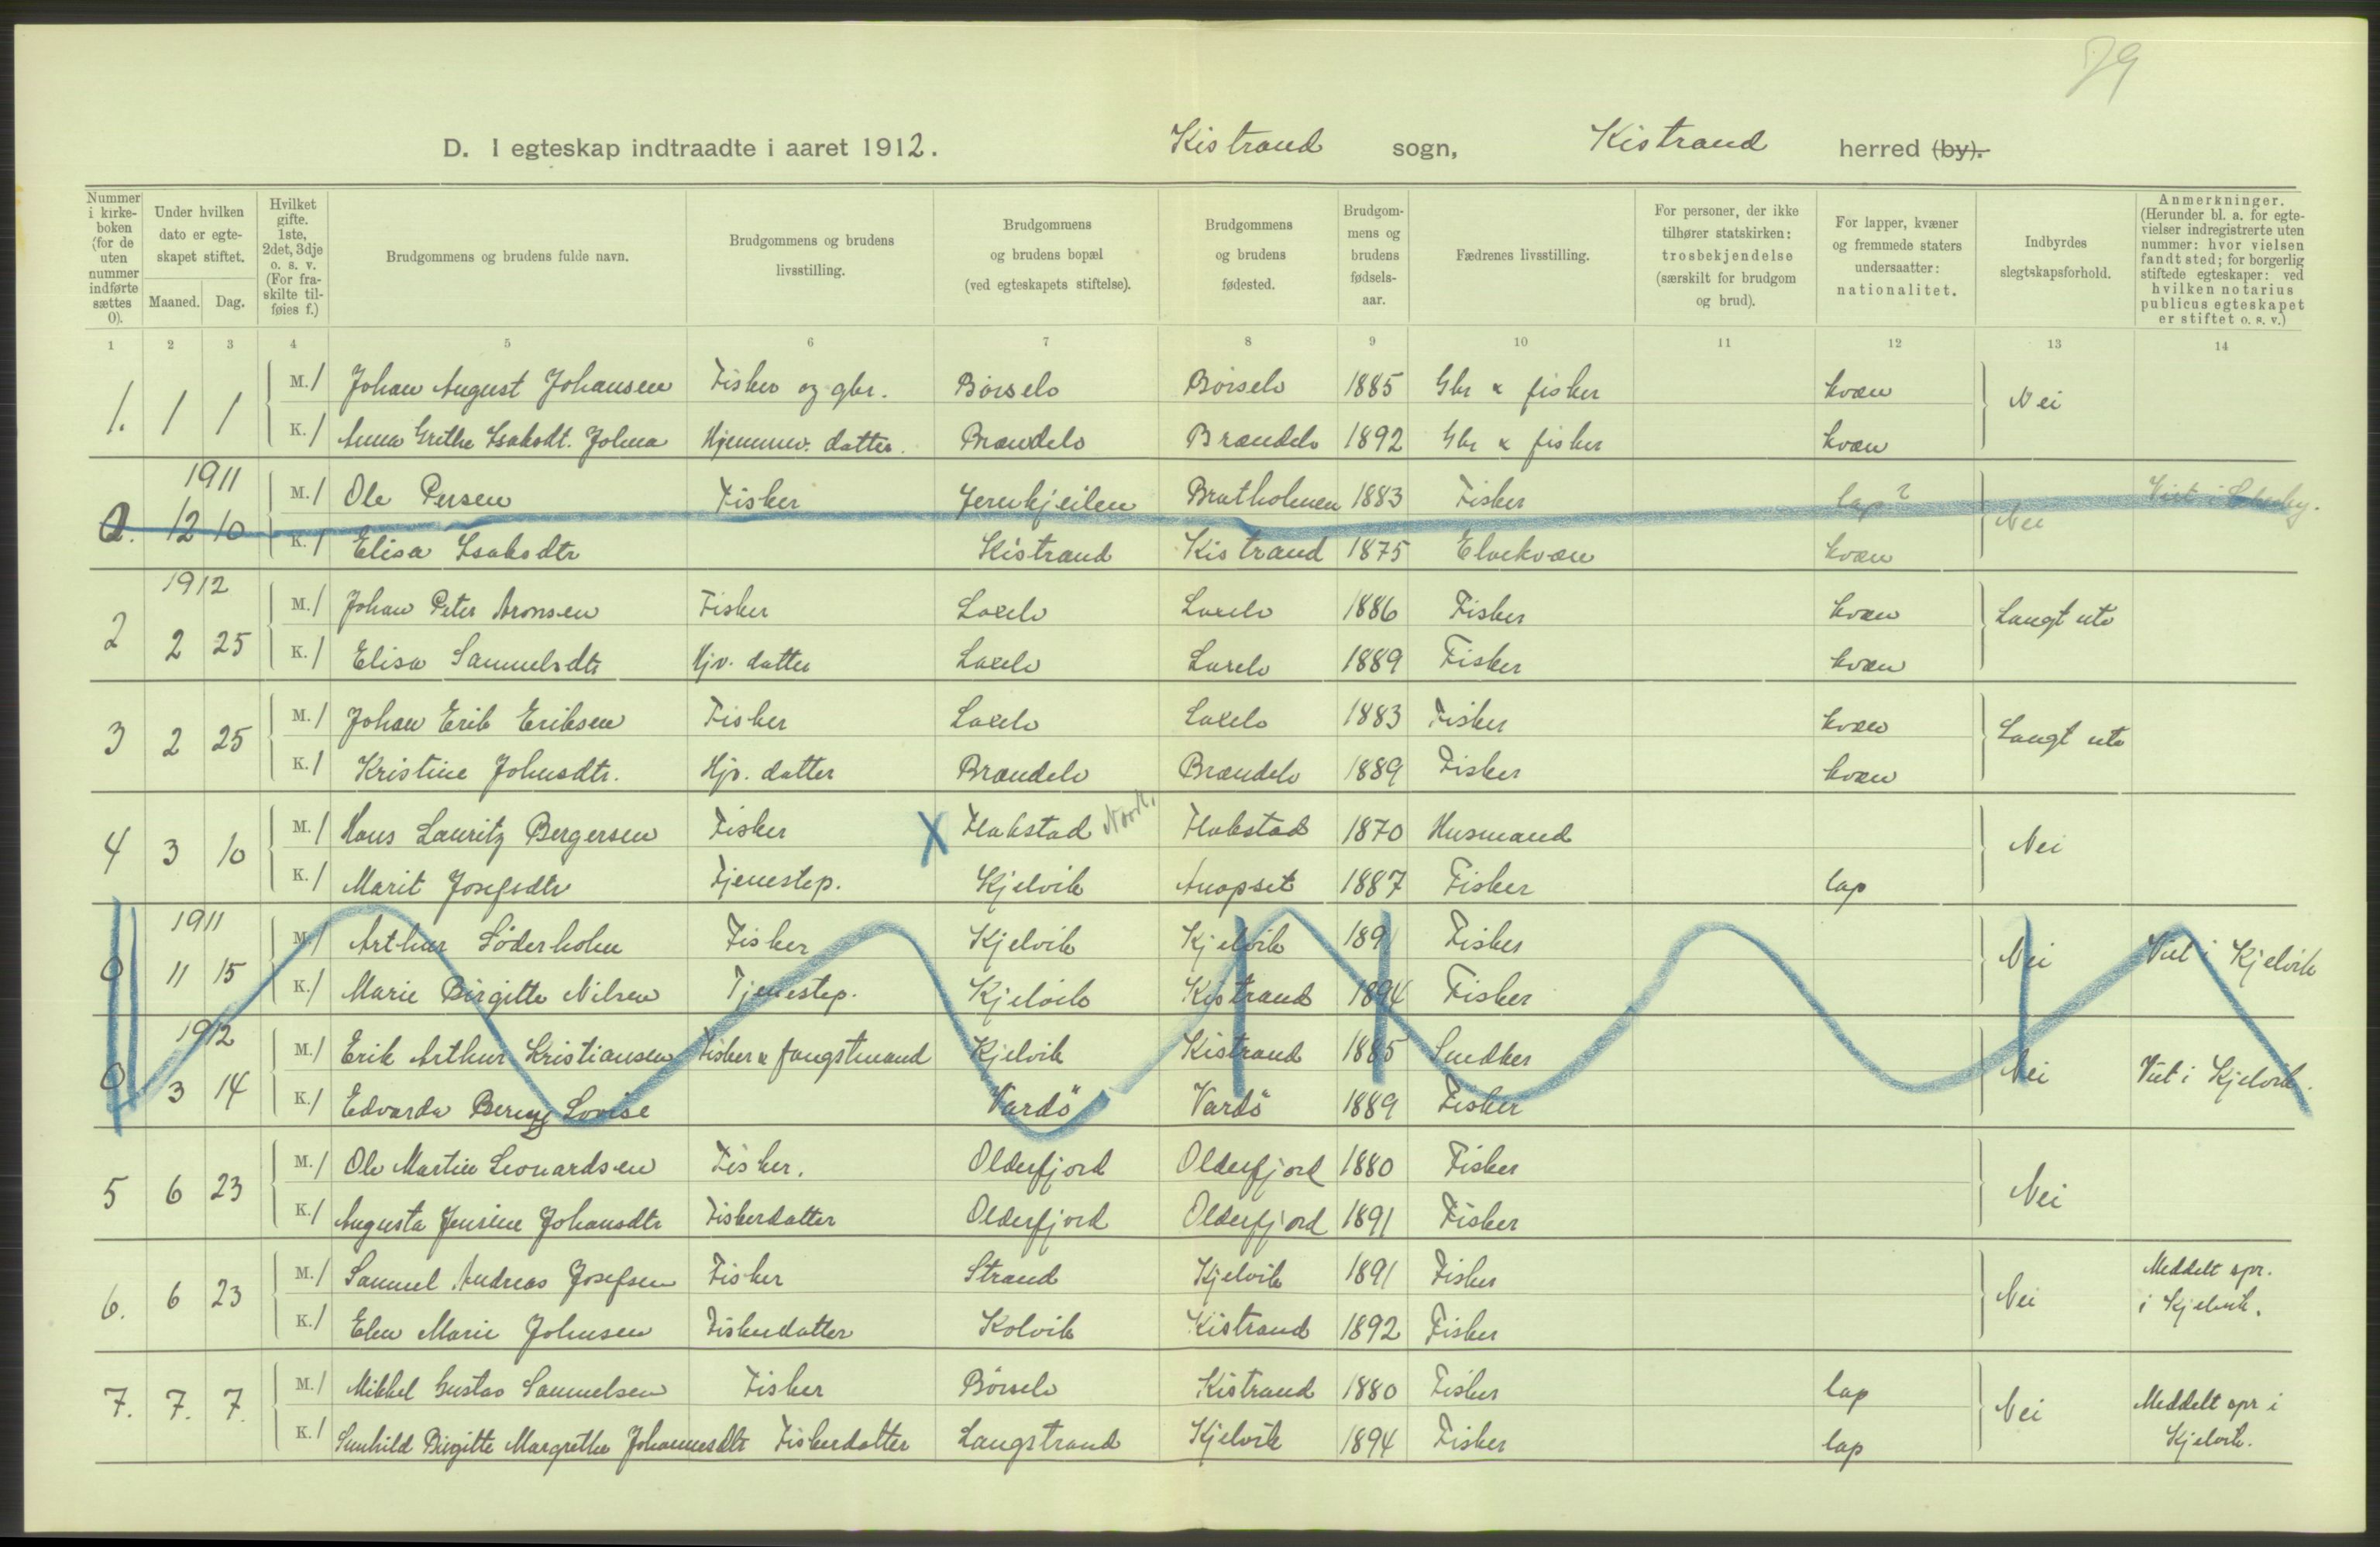 79
D. I egteskap indtraadte i aaret 1912. Kistrand sogn, Kistrand herred (by).
Nummer i kirkeboken (for de uten nummer indførte sættes 0).
Under hvilken dato er egteskapet stiftet.
Maaned. Dag.
Hvilket gifte. 1ste, 2det, 3dje o. s. v. (For fraskilte tilføies f.)
Brudgommens og brudens fulde navn.
Brudgommens og brudens livsstilling.
Brudgommens og brudens bopæl (ved egteskapets stiftelse).
Brudgommens og brudens fødested.
Brudgommens og brudens fødselsaar.
Fædrenes livsstilling.
For personer, der ikke tilhører statskirken: trosbekjendelse (særskilt for brudgom og brud).
For lapper, kvæner og fremmede staters undersaatter: nationalitet.
Indbyrdes slegtskapsforhold.
Anmerkninger. (Herunder bl. a. for egtevielser indregistrerte uten nummer: hvor vielsen fandt sted; for borgerlig stiftede egteskaper: ved hvilken notarius publicus egteskapet er stiftet o. s. v.)
1 2 3 4 5 6 7 8 9 10 11 12 13 14
1. 1 1 M. 1 Johan August Johansen Fisker og gbr. Børselv Børselv 1885 Gbr & fisker kvæn Nei
K. 1 Anna Grethe Isaksdt. Johna Hjemmev. datter. Brændelv Brændelv 1892 Gbr & fisker kvæn
1911
0. 12 10 M. 1 Ole Persen Fisker Jernkjeilen Bratholmen 1883 Fisker lap? Nei Viet i Lebesby.
K. 1 Elisa Isaksdtr Kistrand Kistrand 1875 Elvekvæn kvæn
1912
2 2 25 M. 1 Johan Peter Aronsen Fisker Laxelv Laxelv 1886 Fisker kvæn Langt ute
K. 1 Elisa Samuelsdtr Hjv. datter Laxelv Laxelv 1889 Fisker kvæn
3 2 25 M. 1 Johan Erik Eriksen Fisker Laxelv Laxelv 1883 Fisker kvæn Langt ute
K. 1 Kristine Johnsdtr. Hjv. datter Brændelv Brændelv 1889 Fisker kvæn
4 3 10 M. 1 Hans Lauritz Bergersen Fisker X Flakstad Flakstad 1870 Husmand Nei
K. 1 Marit Josefsdtr Tjenestep. Kjelvik Anopset 1887 Fisker lap
1911
0 11 15 M. 1 Arthur Söderholm Fisker Kjelvik Kjelvik 1891 Fisker Nei Viet i Kjelvik
K. 1 Marie Birgitte Nilsen Tjenestep. Kjelvik Kistrand 1894 Fisker
1912
0 3 14 M. 1 Erik Arthur Kristiansen Fisker & fangstmand Kjelvik Kistrand 1885 Snedker Nei Viet i Kjelvik.
K. 1 Edvarda Bering Lovise Vardö Vardö 1889 Fisker
5 6 23 M. 1 Ole Martin Leonardsen Fisker. Olderfjord Olderfjord 1880 Fisker Nei
K. 1 Augusta Jensine Johansdtr Fiskerdatter Olderfjord Olderfjord 1891 Fisker
6. 6 23 M. 1 Samuel Andreas Josefsen Fisker Strand Kjelvik 1891 Fisker Nei Meddelt opr. i Kjelvik.
K. 1 Elen Marie Johnsen Fiskerdatter Kolvik Kistrand 1892 Fisker
7. 7. 7. M. 1 Mikkel Gustav Samuelsen Fisker Børselv Kistrand 1880 Fisker lap Nei Meddelt opr i Kjelvik.
K. 1 Gunhild Birgitte Margrethe Johannesdtr Fiskerdatter Langstrand Kjelvik 1894 Fisker lap